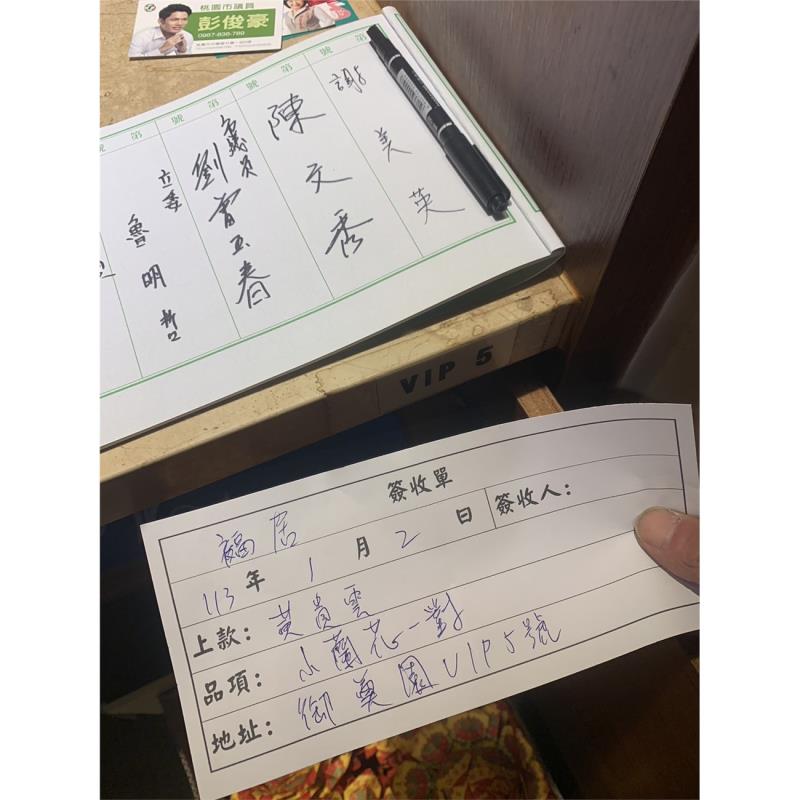 桃園市議員
彭俊豪
第 號
第 號
第 號
第 號
謝美英
陳文秀
議員
劉曾玉春
立委
魯明哲
VIP 5
簽收單
福居
113年1月2日
簽收人：
上款：黃貴雲
品項：小蘭花一對
地址：御奠園VIP5號